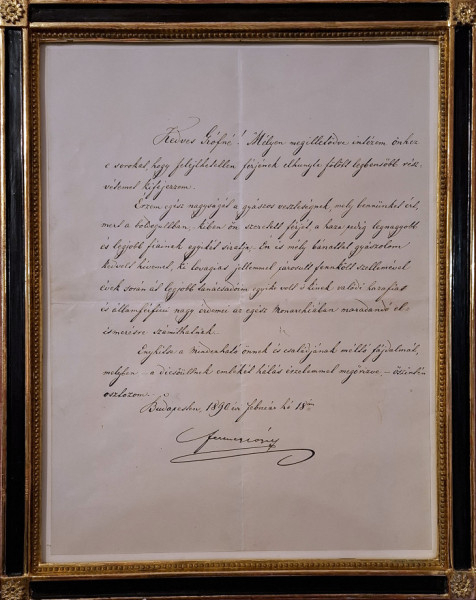 Kedves Grófné! Mélyen megilletődve intézem önhez
e sorokat hogy felejthetetlen férjének elhunyta fölött legbensőbb rész-
vétemet kifejezzem.
Érzem egész nagyságát a gyászos veszteségnek, mely bennünket ért,
mert a boldogultban, kiben ön szeretett férjét, a haza pedig legnagyobb
és legjobb fiainak egyikét siratja, Én is mély bánattal gyászolom
kiváló hívemet, ki lovagias jellemmel párosult fennkölt szellemével
évek során át legjobb tanácsosaim egyike volt s kinek valódi hazafiúi
és államférfiúi nagy érdemei az egész Monarchiában maradandó el-
ismerésre számíthatnak.
Enyhítse a Mindenható önnek és családjának méltó fájdalmát,
melyben – a dicsőültnek emlékét hálás érzelemmel megőrizve, – őszintén
osztozom.
Budapesten, 1890 évi február hó 18án
Ferencz József